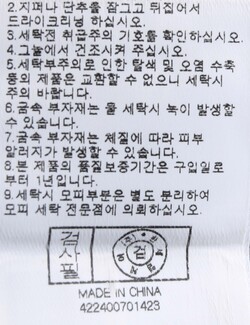 2.지퍼나 단추를 잠그고 뒤집어서
드라이크리닝 하십시오.
3.세탁전 취급주의 기호를 확인하십시오.
4.그늘에서 건조시켜 주십시오.
5.세탁부주의로 인한 탈색 및 오염 수축
등의 제품은 교환할 수 없으니 세탁시
주의 바랍니다.
6.금속 부자재는 물 세탁시 녹이 발생할
수 있습니다.
7.금속 부자재는 체질에 따라 피부
알러지가 발생할 수 있습니다.
8.본 제품의 품질보증기간은 구입일로
부터 1년입니다.
9.세탁시 모피부분은 별도 분리하여
모피 세탁 전문점에 의뢰하십시오.
검사필
검
MADE IN CHINA
422400701423